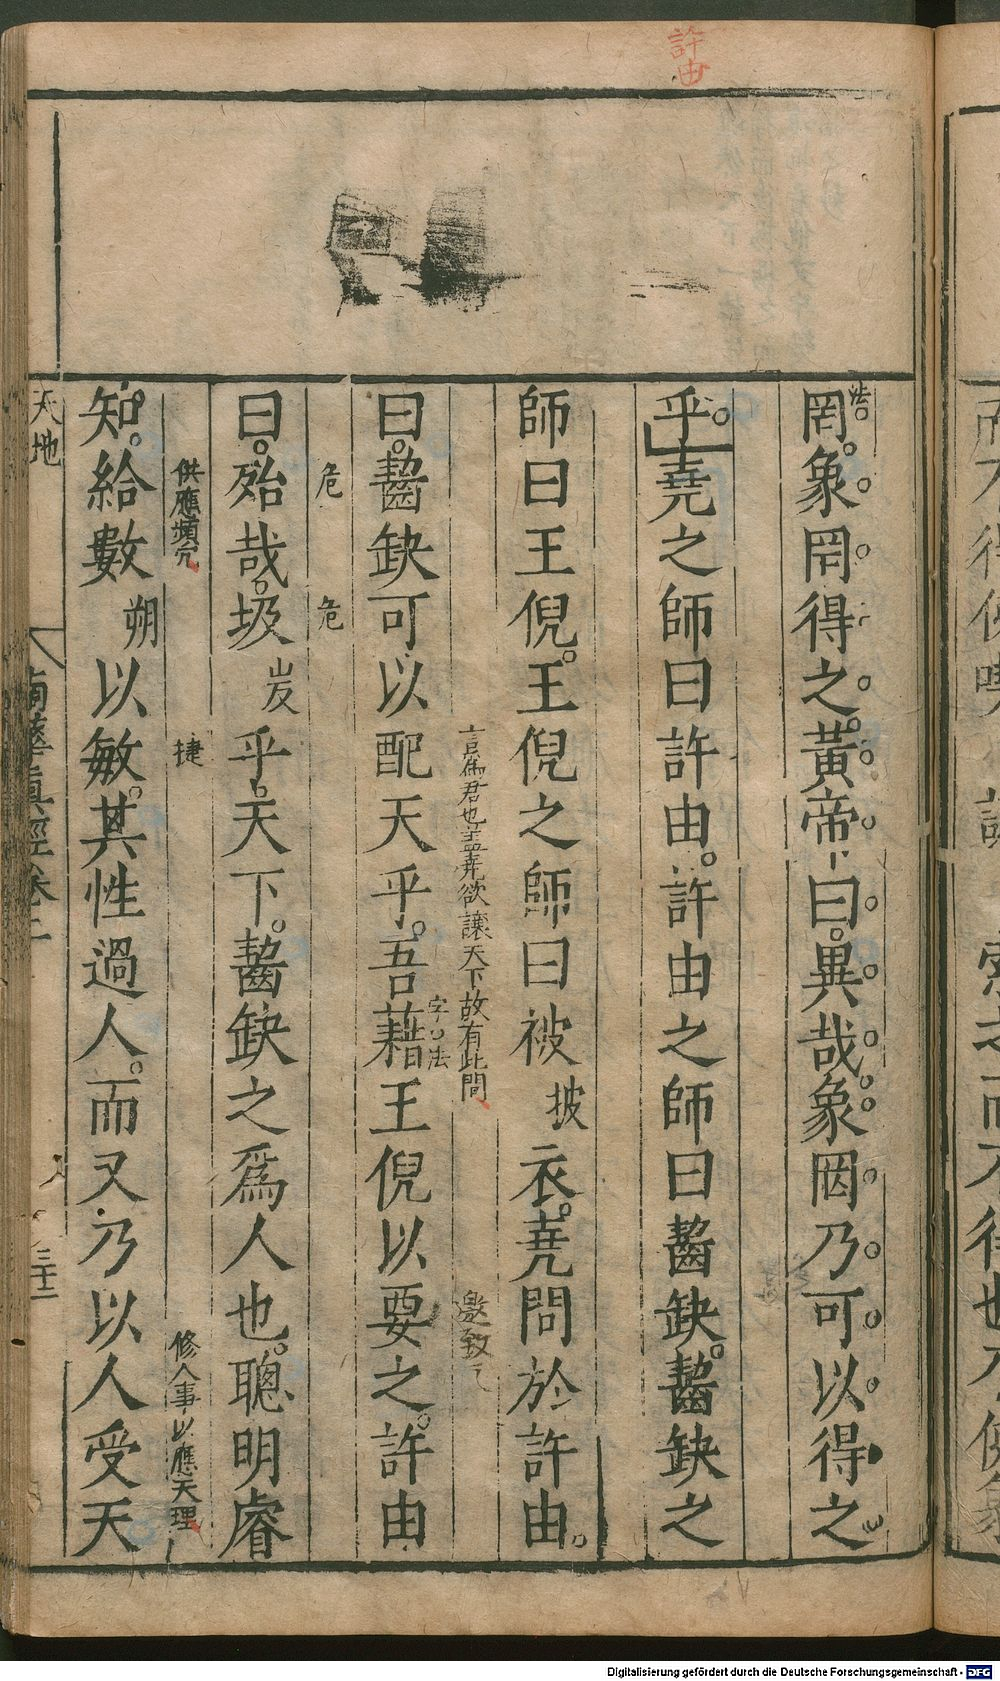 許由
法
罔象罔得之黃帝曰異哉象罔乃可以得之
乎堯之師曰許由許由之師曰齧缺齧缺之
師曰王倪王倪之師曰被披衣堯問於許由
言爲君也盖堯欲讓天下故有此問
邀致之
曰齧缺可以配天乎吾藉王倪以要之許由
字法
危
危
曰殆哉圾岌乎天下齧缺之爲人也聰明睿
供應頻冗
捷
修人事以應天理
知給數朔以敏其性過人而又乃以人受天
天地
南華眞經卷
三十二
Digitalisierung gefördert durch die Deutsche Forschungsgemeinschaft - DFG